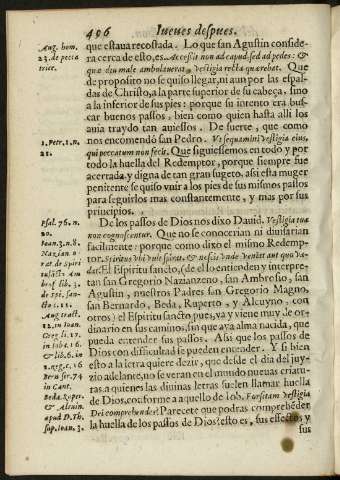 496 Iueues despues.
que estaua recostada. Lo que san Agustin considera
cerca de esto, es. Accessit non ad caput sed ad pedes: &
quæ diu male ambulauerat, vestigia recta quærebat. Que
de proposito no se quiso llegar, ni aun por las espaldas
de Christo, a la parte superior de su cabeça, sino
a la inferior de sus pies: porque su intento era buscar
buenos passos, bien como quien hasta alli los
auia traydo tan auiessos. De suerte, que como
nos encomendó san Pedro. Vt sequamini vestigia eius,
qui peccatum non fecit. Que siguiessemos en todo y por
todo la huella del Redemptor, porque siempre fue
acertada, y digna de tan gran sugeto, assi esta muger
penitente se quiso vnir a los pies de sus mismos passos
para seguirlos mas constantemente, y mas por sus
principios.
De los passos de Dios nos dixo Dauid. Vestigia tua
non cognoscentur. Que no se conocerian ni diuisarian
facilmente: porque como dixo el mismo Redemptor.
Spiritus vbi vult spirat, & nescis vnde veniat aut quo vadat.
El Espiritu sancto, (de el lo entienden y interpretan
san Gregorio Nazianzeno, san Ambrosio, san
Agustin, nuestros Padres san Gregorio Magno,
san Bernardo, Beda, Ruperto, y Alcuyno, con
otros) el Espiritu sancto pues, va y viene muy de ordinario
en sus caminos, sin que aya alma nacida, que
pueda entender sus passos. Assi que los passos de
Dios con dificultad se pueden entender. Y si bien
esto a la letra quiere dezir, que desde el dia del juyzio
adelante, no se veran en el mundo nueuas criaturas
a quienes las diuinas letras suelen llamar huella
de Dios, conforme a aquello de Iob. Forsitam vestigia
Dei comprehendes? Parecete que podras comprehēder
la huella de los passos de Dios? esto es, sus effectos, y
sus
Aug. hom.
23. de pecca
trice.
1. Petr. 2. n.
21.
Psal. 76. n.
20.
Ioan. 3. n. 8.
Nazian. o
rat. de Spiri
Am
br. lib. 3.
de spi. san-
cto c. 11.
Aug tract.
12. in Ioan.
Greg li. 17.
in Iob c. 16.
& lib. 6. in
1. reg. c. 16
Bern ser. 74
in Cant.
Beda. Ruper.
& Alcuin.
apud D. Th.
sup. Ioan. 3.